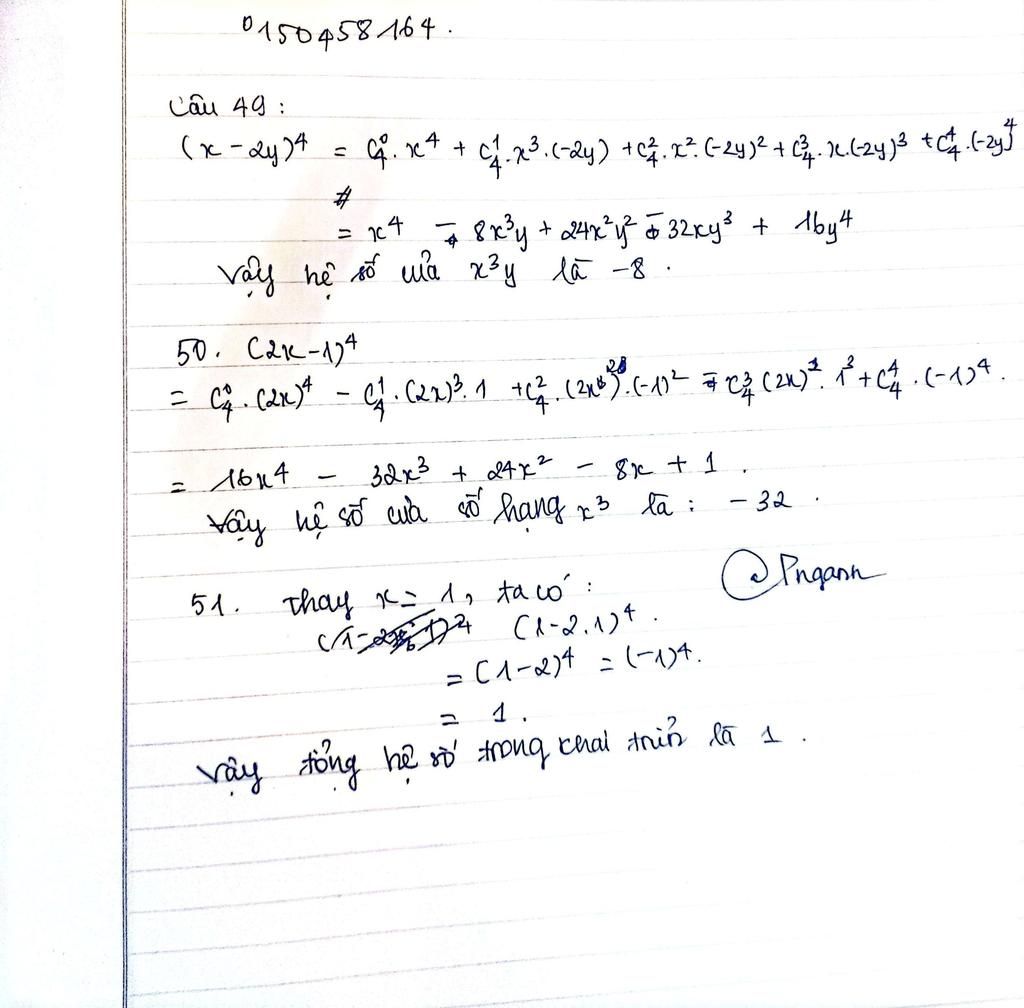 0150458164.
Câu 49:
(x - 2y)⁴ = C₄⁰. x⁴ + C₄¹. x³. (-2y) + C₄². x². (-2y)² + C₄³. x. (-2y)³ + C₄⁴. (-2y)⁴
= x⁴ - 8x³y + 24x²y² - 32xy³ + 16y⁴
Vậy hệ số của x³y là -8.
50. (2x-1)⁴
= C₄⁰. (2x)⁴ - C₄¹. (2x)³. 1 + C₄². (2x)². (-1)² - C₄³ (2x)¹. 1³ + C₄⁴. (-1)⁴.
= 16x⁴ - 32x³ + 24x² - 8x + 1.
Vậy hệ số của số hạng x³ là: -32.
@Pnganh
51. Thay x = 1, ta có:
(1-2.1)⁴.
= (1-2)⁴ = (-1)⁴.
= 1.
Vậy tổng hệ số trong khai triển là 1.